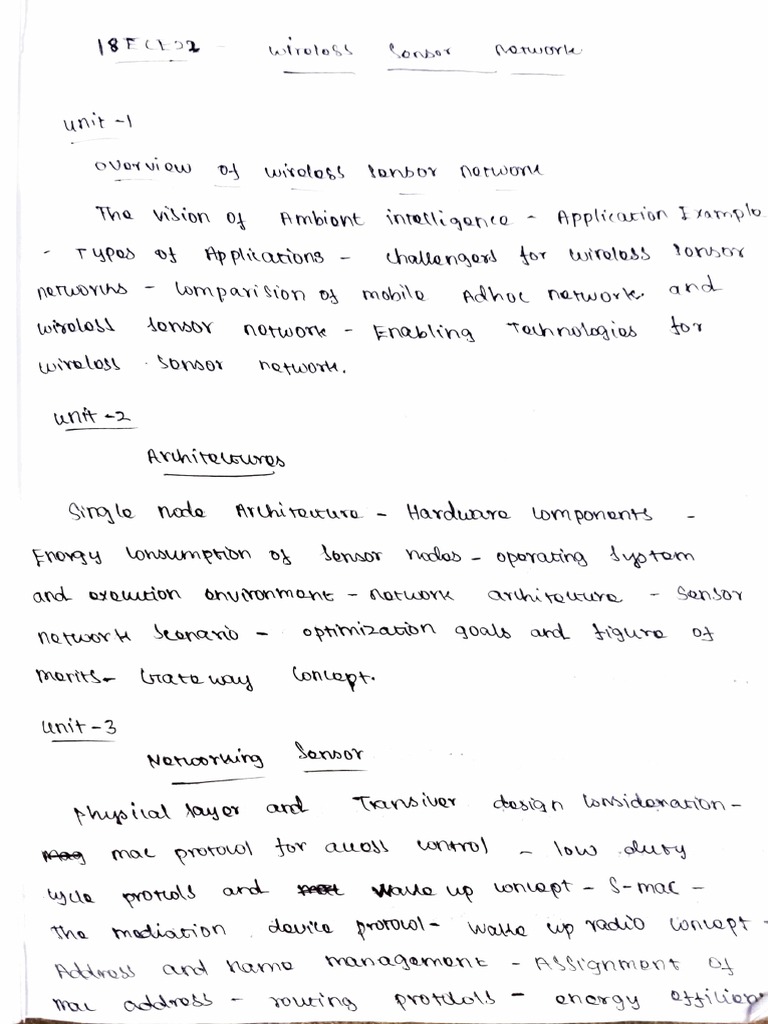 wireless sensor network
unit-1
overview of wireless sensor network
The vision of Ambient intelligence - Application Example
- Types of Applications - challengers for wireless sensor
networks - comparision of mobile Adhoc network and
wireless sensor network - Enabling Technologies for
wireless sensor network.
unit-2
Architectures
Single node Architecture - Hardware components -
Energy consumption of sensor nodes - operating system
and execution environment - network architecture - sensor
network scenario - optimization goals and figure of
merits - Gateway concept.
unit-3
Networking Sensor
Physical layer and Transiver design consideration -
mac protocol for access control - low duty
cycle protcols and wake up concept - S-mac -
The mediation device protocol - wake up radio concept -
Address and name management - Assignment of
mac address - routing protcols - energy efficien